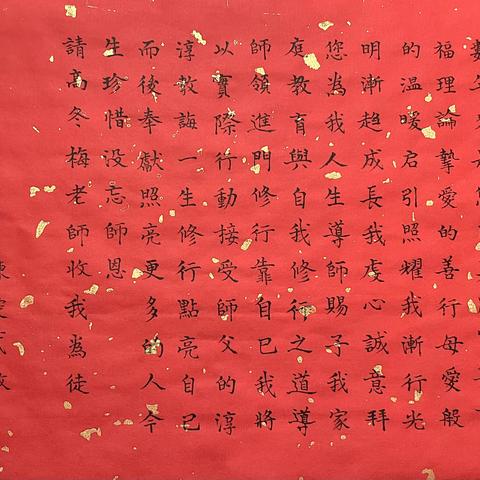 福理論摯愛的善行母愛般
的溫暖启引照耀我漸行光
明漸趋成長我虔心誠意拜
您為我人生導師賜予我家
庭教育與自我修行之道導
師領進門修行靠自己我將
以實際行動接受師父的淳
淳教誨一生修行點亮自己
而後奉獻照亮更多的人今
生珍惜没忘師恩
請高冬梅老師收我為徒